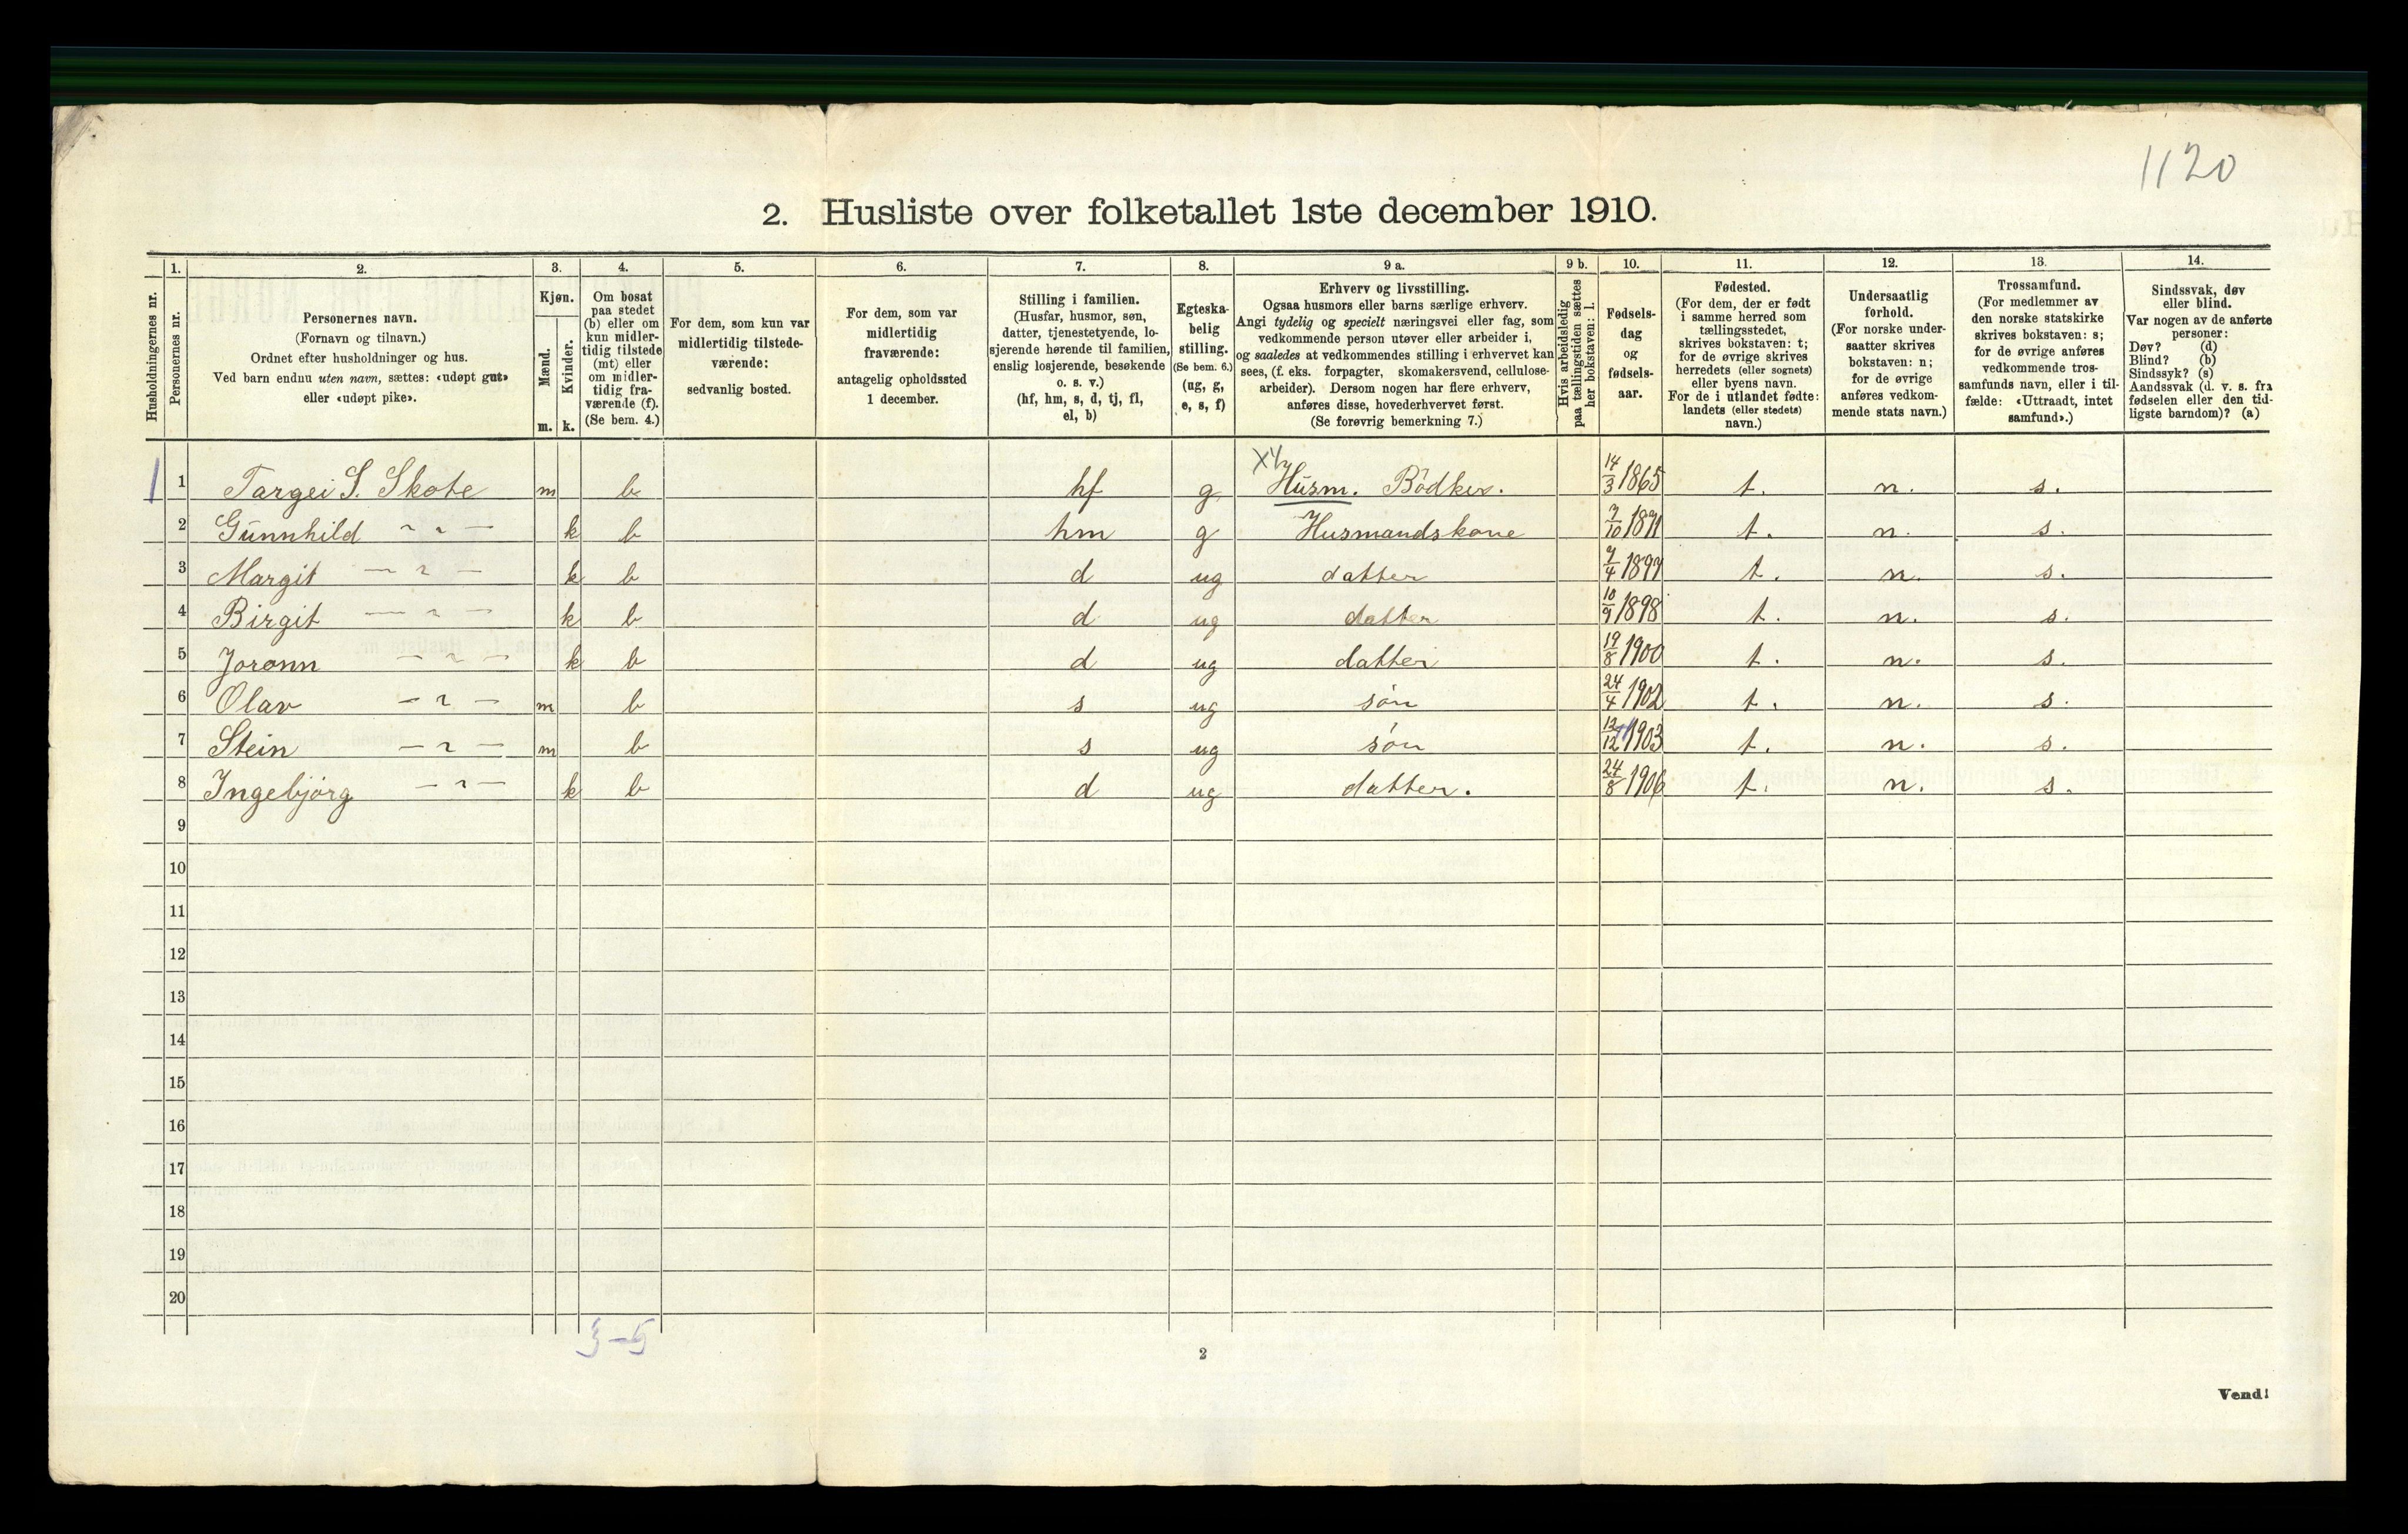 1120
2. Husliste over folketallet 1ste december 1910.
Husholdningernes nr.
1.
Personernes nr.
2.
Personernes navn.
(Fornavn og tilnavn.)
Ordnet efter husholdninger og hus.
Ved barn endnu uten navn, sættes: «udøpt gut»
eller «udøpt pike».
3.
Kjøn.
Mænd.
Kvinder.
m. k.
4.
Om bosat
paa stedet
(b) eller om
kun midler-
tidig tilstede
(mt) eller
om midler-
tidig fra-
værende (f).
(Se bem. 4.)
5.
For dem, som kun var
midlertidig tilstede-
værende:
sedvanlig bosted.
6.
For dem, som var
midlertidig
fraværende:
antagelig opholdssted
1 december.
7.
Stilling i familien.
(Husfar, husmor, søn,
datter, tjenestetyende, lo-
sjerende hørende til familien,
enslig losjerende, besøkende
o. s. v.)
(hf, hm, s, d, tj, fl,
el, b)
8.
Egteska-
belig
stilling.
(Se bem. 6.)
(ug, g,
e, s, f)
9 a.
Erhverv og livsstilling.
Ogsaa husmors eller barns særlige erhverv.
Angi tydelig og specielt næringsvei eller fag, som
vedkommende person utøver eller arbeider i,
og saaledes at vedkommendes stilling i erhvervet kan
sees, (f. eks. forpagter, skomakersvend, cellulose-
arbeider). Dersom nogen har flere erhverv,
anføres disse, hovederhvervet først.
(Se forøvrig bemerkning 7.)
9 b.
Hvis arbeidsledig
paa tællingstiden sættes
her bokstaven: l.
10.
Fødsels-
dag
og
fødsels-
aar.
11.
Fødested.
(For dem, der er født
i samme herred som
tællingsstedet,
skrives bokstaven: t;
for de øvrige skrives
herredets (eller sognets)
eller byens navn.
For de i utlandet fødte:
landets (eller stedets)
navn.)
12.
Undersaatlig
forhold.
(For norske under-
saatter skrives
bokstaven: n;
for de øvrige
anføres vedkom-
mende stats navn.)
13.
Trossamfund.
(For medlemmer av
den norske statskirke
skrives bokstaven: s;
for de øvrige anføres
vedkommende tros-
samfunds navn, eller i til-
fælde: «Uttraadt, intet
samfund».)
14.
Sindssvak, døv
eller blind.
Var nogen av de anførte
personer:
Døv? (d)
Blind? (b)
Sindssyk? (s)
Aandssvak (d. v. s. fra
fødselen eller den tid-
ligste barndom)? (a)
X4
1 1 Targei S. Skote m b hf g Husm. Bödker. 14/3 1865 t. n. s.
2 Gunnhild – " – k b hm g Husmandskone 7/10 1871 t. n. s.
3 Margit – " – k b d ug datter 9/4 1897 t. n. s.
4 Birgit – " – k b d ug datter 10/9 1898 t. n. s.
5 Joronn – " – k b d ug datter 19/8 1900 t. n. s.
6 Olav – " – m b s ug søn 24/4 1902 t. n. s.
7 Stein – " – m b s ug søn 12/12 1903 t. n. s.
8 Ingebjörg – " – k b d ug datter. 24/8 1906 t. n. s.
9
10
11
12
13
14
15
16
17
18
19
20
3-5
2
Vend!